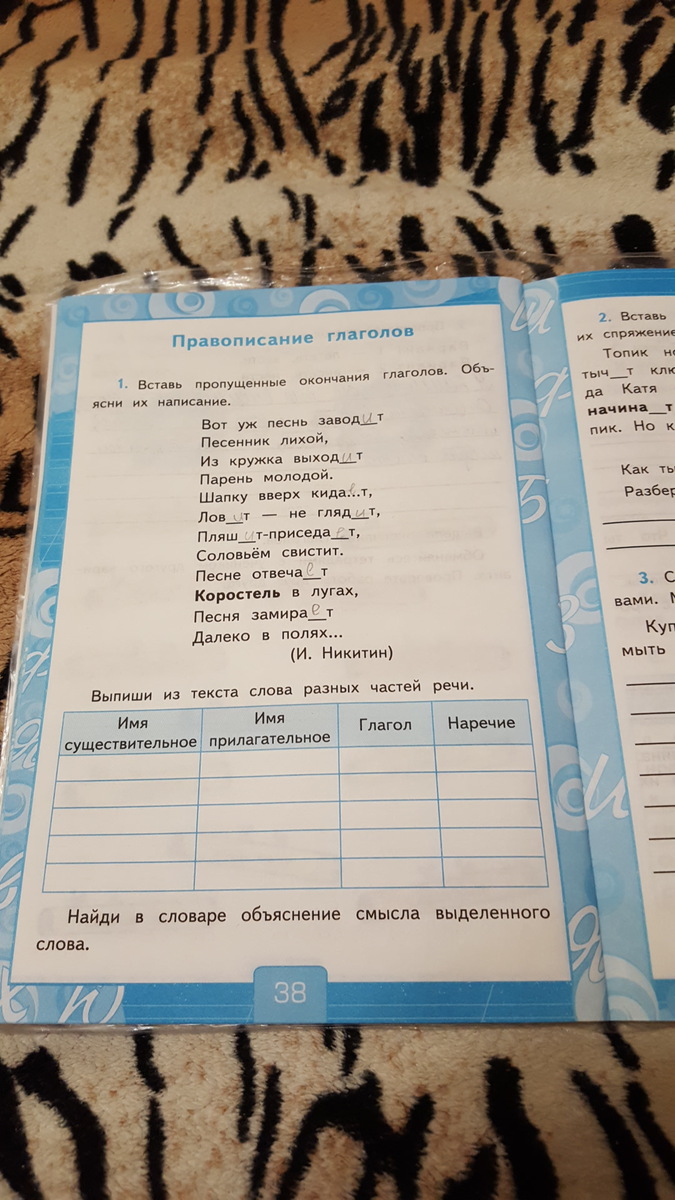 Правописание глаголов
1. Вставь пропущенные окончания глаголов. Объ-
ясни их написание.
Вот уж песнь заводит
Песенник лихой,
Из кружка выходит
Парень молодой.
Шапку вверх кидает,
Ловит — не глядит,
Пляшит-приседает,
Соловьём свистит.
Песне отвечает
Коростель в лугах,
Песня замирает
Далеко в полях...
(И. Никитин)
Выпиши из текста слова разных частей речи.
Имя существительное
Имя прилагательное
Глагол
Наречие
Найди в словаре объяснение смысла выделенного
слова.
38
2. Вставь
их спряжение
Топик не
тыч__т клю
да Катя
начина__т
пик. Но к
Как ты
Разбер
3. С
вами. М
Куп
мыть